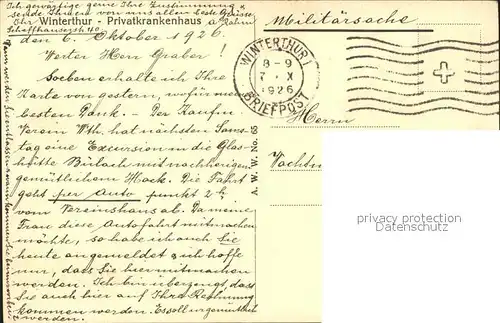 Ich gewärtige gerne Ihre Zustimmung &
sende Ihnen von uns allen beste Grüsse.
Ihr
Winterthur - Privatkrankenhaus
Schaffhauserstr. 40.
den 6. Oktober 1926.
Werter Herr Graber!
Soeben erhalte ich Ihre
Karte von gestern, wofür mein
besten Dank. - Der Kaufm.
Verein Wth. hat nächsten Sams-
tag eine Excursion in die Glas-
hütte Bülach mit nachherigem
gemütlichem Hock. Die Fahrt
geht per Auto punkt 2 h
vom Vereinshaus ab. Da meine
Frau diese Autofahrt mitmachen
möchte, so habe ich auch Sie
heute angemeldet & ich hoffe
nun, dass Sie hier mitmachen
werden. Ich bin überzeugt, dass
Sie auch hier auf Ihre Rechnung
kommen werden. Es soll ein gemütlich
werden.
A. W. W. No. 68
Militärsache
WINTERTHUR 1
8-9
7. X
1926
BRIEFPOST
Herrn
privacy protection
watermark